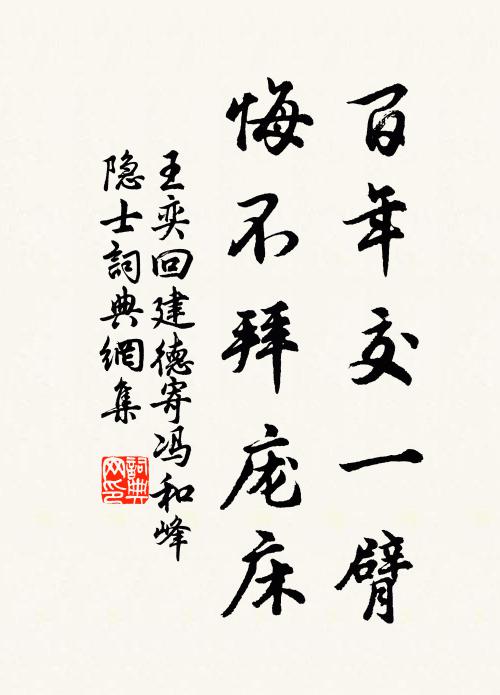 百年交一臂
悔不拜庞床
王奕回建德寄冯和峰
隐士詞典網集
詞典網印